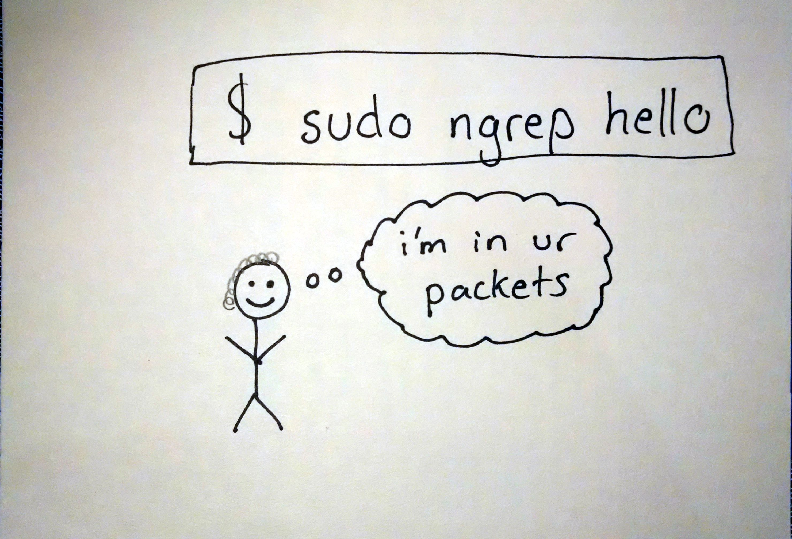 $ sudo ngrep hello
i'm in ur
packets